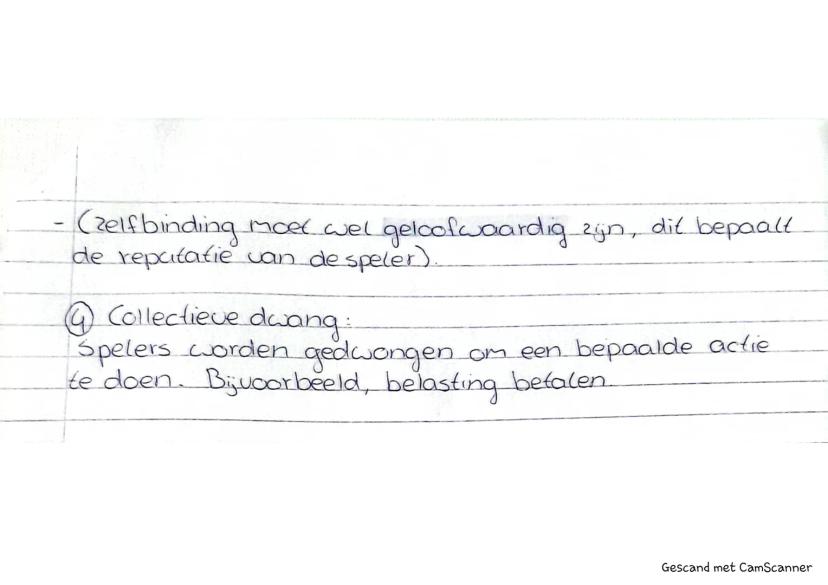 - (zelfbinding moet wel geloofwaardig zijn, dit bepaalt
de reputatie van de speler).
④ Collectieve dwang:
Spelers worden gedwongen om een bepaalde actie
te doen. Bijvoorbeeld, belasting betalen
Gescand met CamScanner